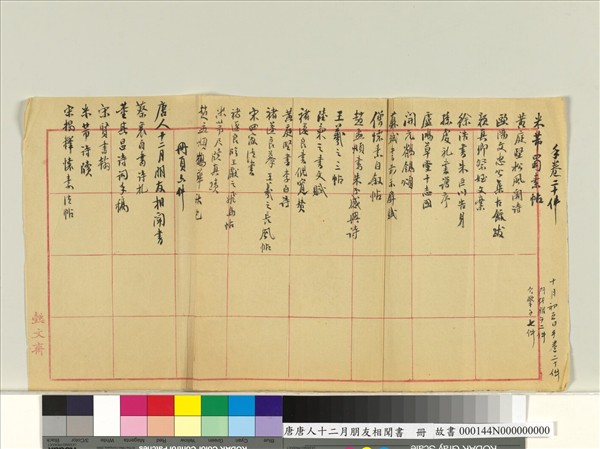 手卷二十件
米芾蜀素帖
黃庭堅松風閣詩
歐陽文忠公集古錄跋
顏真卿祭姪文藁
徐浩書朱巨川告身
孫虔禮書譜序
盧鴻草堂十志圖
開元鶺鴒頌
蘇軾書前赤壁賦
僧懷素自敘帖
趙孟頫書朱子感興詩
王羲之三帖
陸柬之書文賦
褚遂良書倪寬贊
黃庭堅書李白詩
褚遂良摹王羲之長風帖
宋四家法書
褚遂良臨王獻之飛鳥帖
米芾尺牘真蹟
趙孟頫
冊頁五件
唐人十二月朋友相聞書
蔡襄自書詩札
董其昌詩詞手稿
宋賢書翰
米芾詩牘
宋搨釋懷素法帖
十月初五日手卷二十件
冊頁
七件
文齋
唐唐人十二月朋友相聞書 冊 故書 000144N000000000